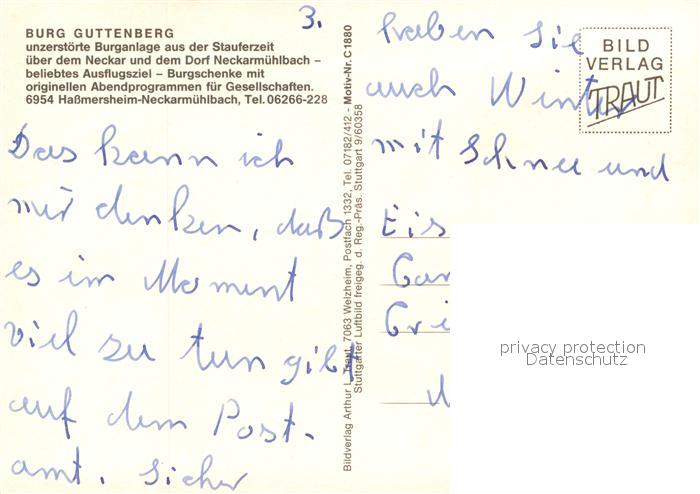 3.
BURG GUTTENBERG
unzerstörte Burganlage aus der Stauferzeit
über dem Neckar und dem Dorf Neckarmühlbach –
beliebtes Ausflugsziel – Burgschenke mit
originellen Abendprogrammen für Gesellschaften.
6954 Haßmersheim-Neckarmühlbach, Tel. 06266-228
Das kann ich
mir denken, daß
es im Moment
viel zu tun gibt
auf dem Post-
amt. Sicher
Bildverlag Arthur L. Traut, 7063 Welzheim, Postfach 1332, Tel. 07182/412 - Motiv-Nr. C1880
Stuttgarter Luftbild freigeg. d. Reg.-Präs. Stuttgart 9/60358
haben Sie
auch Winter
mit Schnee und
Eis
BILD
VERLAG
TRAUT
privacy protection
Datenschutz